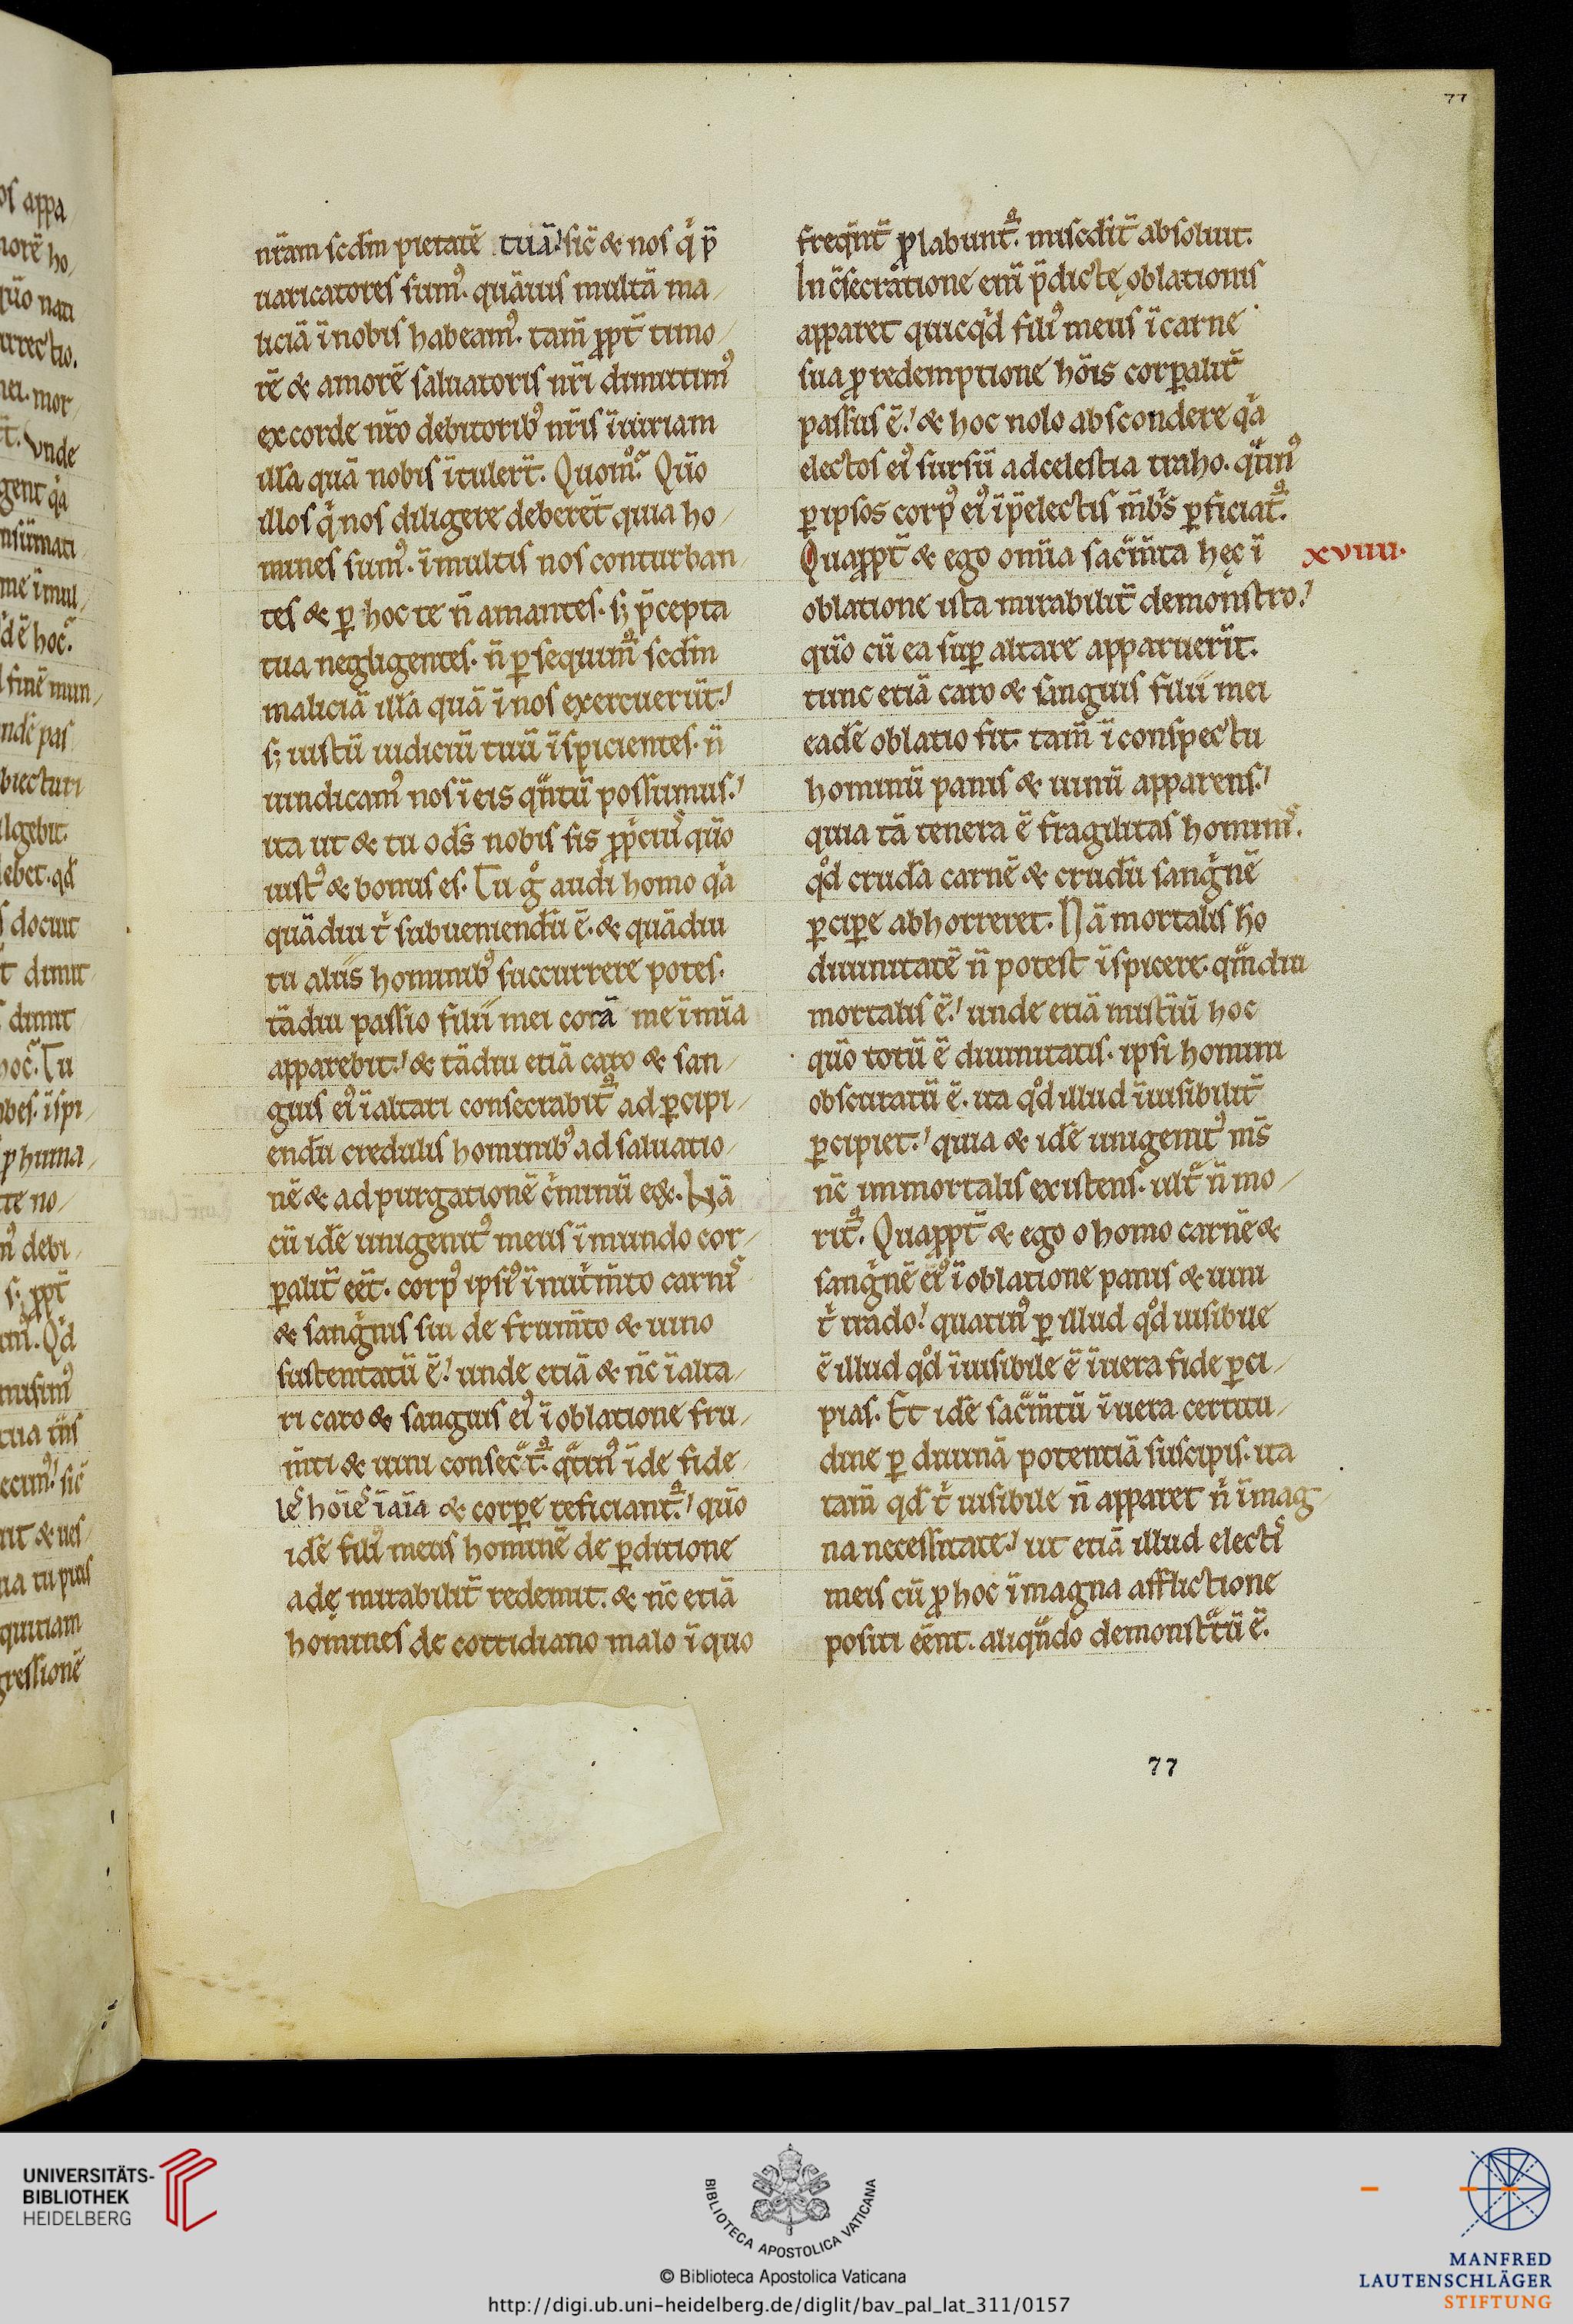 77
nr̄am scd̄m pietatē tuā! sic̄ & nos q̇ p̄
uaricatores sum᷒. quāuis multā ma-
liciā ī nobis habeam᷒. tam̄ ꝓpt̄ timo-
rē & amorē saluatoris nr̄i dimittim᷒
ex corde nr̄o debitorib᷒ nr̄is īiuriam
illā quā nobis ītuler̄t. Quom̊? Qūo
illos q̇ nos diligere deberēt quia ho-
mines sum᷒. ī multis nos conturban-
tes & ꝑ hoc te n̄ amantes. sꝫ p̄cepta
tua negligentes. n̄ ꝑsequim̄᷒ scd̄m
maliciā illā quā ī nos exercuerūt!
sꝫ iustū iudiciū tuū īspicientes. n̄
uindicam᷒ nos ī eis qᷓntū possumus!
ita ut & tu o ds̄ nobis sis ꝓpiciu᷒ qūo
iust᷒ & bonus es. Tu g̊ audi homo qᷓa
quādiu t̄ subueniendū ē. & quādiu
tu aliis hominib᷒ succurrere potes.
tādiu passio filii mei corā me ī mīa
apparebit! & tādiu etiā caro & san-
guis ei᷒ ī altari consecrabit᷒ ad ꝑcipi-
endū credulis hominib᷒ ad saluatio-
nē & ad purgationē c̓minū eoꝝ. Nā
cū idē unigenit᷒ meus ī mundo cor-
ꝑalit̄ eēt. corp᷒ ipsi᷒ ī nut̓m̄to carnis
& sanḡnis sui de frum̄to & uino
sustentatū ē! unde etiā & nc̄ ī alta-
ri caro & sanguis ei᷒ ī oblatione fru-
m̄ti & uini consec̄t᷒. qᷓtin᷒ īde fide-
les hoīes ī aīa & corꝑe reficiant᷒! qūo
idē fili᷒ meus hominē de ꝑditione
adę mirabilit̄ redemit. & nc̄ etiā
homines de cottidiano malo ī quo
freqn̄t̄ ꝓlabunt᷒. misc̄dit̄ absoluit.
In c̄secratione eni̅ p̄dictę oblationis
apparet quicqd̄ fili᷒ meus ī carne
sua ꝓ redemptione hoīs corꝑalit̄
passus ē! & hoc nolo abscondere qᷓa
electos ei᷒ sursū ad celestia traho. qᷓtin᷒
ꝑ ipsos corp᷒ ei᷒ ī p̄electis m̄bris ꝑficiat᷒.
Quaꝓpt̄ & ego om̄ia sac̄m̄ta hęc ī
xviiii.
oblatione ista mirabilit̄ demonstro!
qūo cū ea suꝑ altare apparuerīt.
tunc etiā caro & sanguis filii mei
eadē oblatio fit. tam̄ ī conspectu
hominū panis & uinū apparens!
quia tā tenera ē fragilitas hominis.
qd̊ crudā carnē & crudū sanḡnē
ꝑciꝑe abhorreret. Nā mortalis ho
diuinitatē n̄ potest īspicere. qᷓmdiu
mortalis ē! unde etiā mist̓iū hoc
qūo totū ē diuinitatis. ipsi homini
obscuratū ē. ita qd̊ illud īuisibilit̄
ꝑcipiet! quia & idē unigenit᷒ ms̄
nc̄ immortalis existens. ult̄ n̄ mo-
rit᷒. Quaꝓpt̄ & ego o homo carnē &
sanḡnē ei᷒ ī oblatione panis & uini
t̄ trado! quatin᷒ ꝑ illud qd̊ uisibile
ē illud qd̊ īuisibile ē ī uera fide ꝑci-
pias. Et idē sac̄m̄tū ī uera certitu-
dine ꝑ diuinā potentiā suscipis. ita
tam̄ qd̊ t̄ uisibile n̄ apparet n̓ ī mag-
na necessitate! ut etiā illud electis
meis cū ꝓ hoc ī magna afflictione
positi eēnt. aliqn̄do demonst̓tū ē.
77
UNIVERSITÄTS-
BIBLIOTHEK
HEIDELBERG
BIBLIOTECA APOSTOLICA VATICANA
© Biblioteca Apostolica Vaticana
http://digi.ub.uni-heidelberg.de/diglit/bav_pal_lat_311/0157
MANFRED
LAUTENSCHLÄGER
STIFTUNG